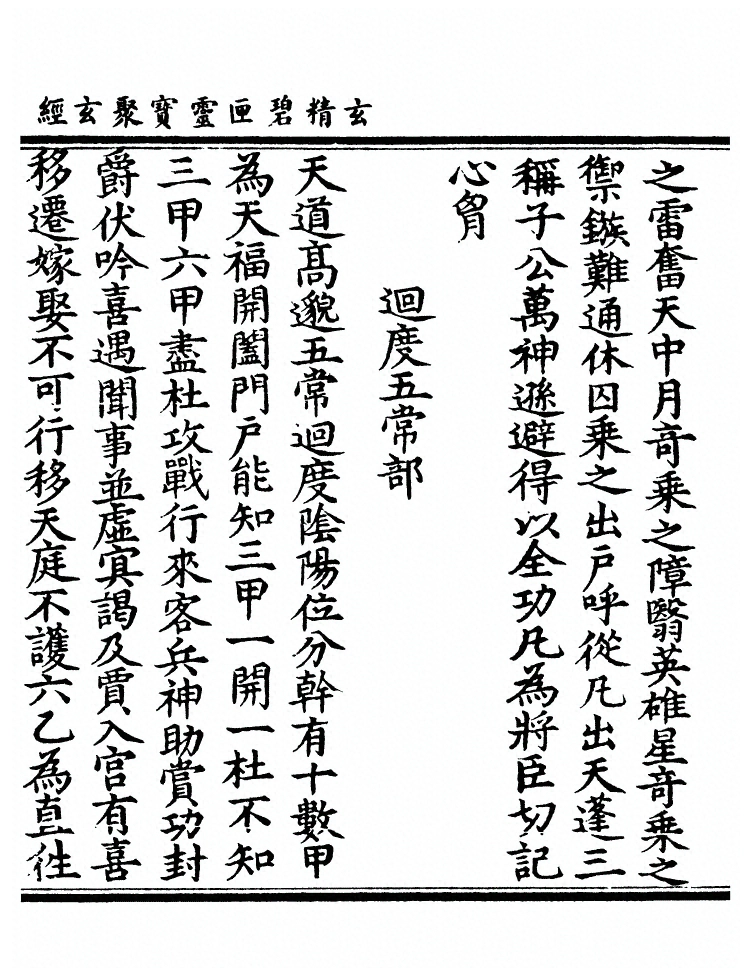 玄精碧匣靈寶聚玄經
之雷奮天中月奇乘之障翳英雄星奇乘之
禦鏃難通休囚乘之出戶呼從凡出天蓬三
稱子公萬神遜避得以全功凡為將臣切記
心胷
迴度五常部
天道高邈五常迴度陰陽位分幹有十數甲
為天福開闔門戶能知三甲一開一杜不知
三甲六甲盡杜攻戰行來客兵神助賞功封
爵伏吟喜遇聞事並虛寅謁及賈入官有喜
移遷嫁娶不可行移天庭不護六乙為直徃